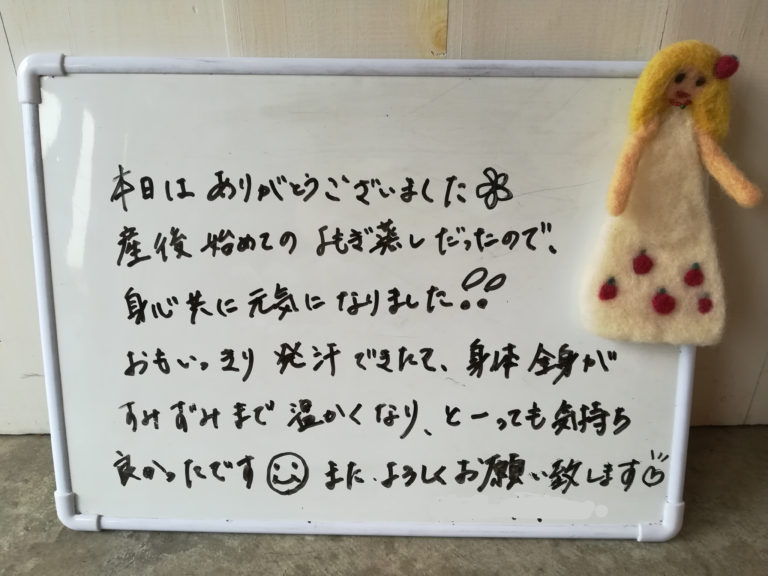 本日は ありがとうございました
産後 始めての よもぎ蒸しだったので、
身心共に 元気に なりました!!
おもいっきり 発汗 できたて、身体 全身が
すみずみまで 温かくなり、と一っても 気持ち
良かったです また、よろしくお願い致します